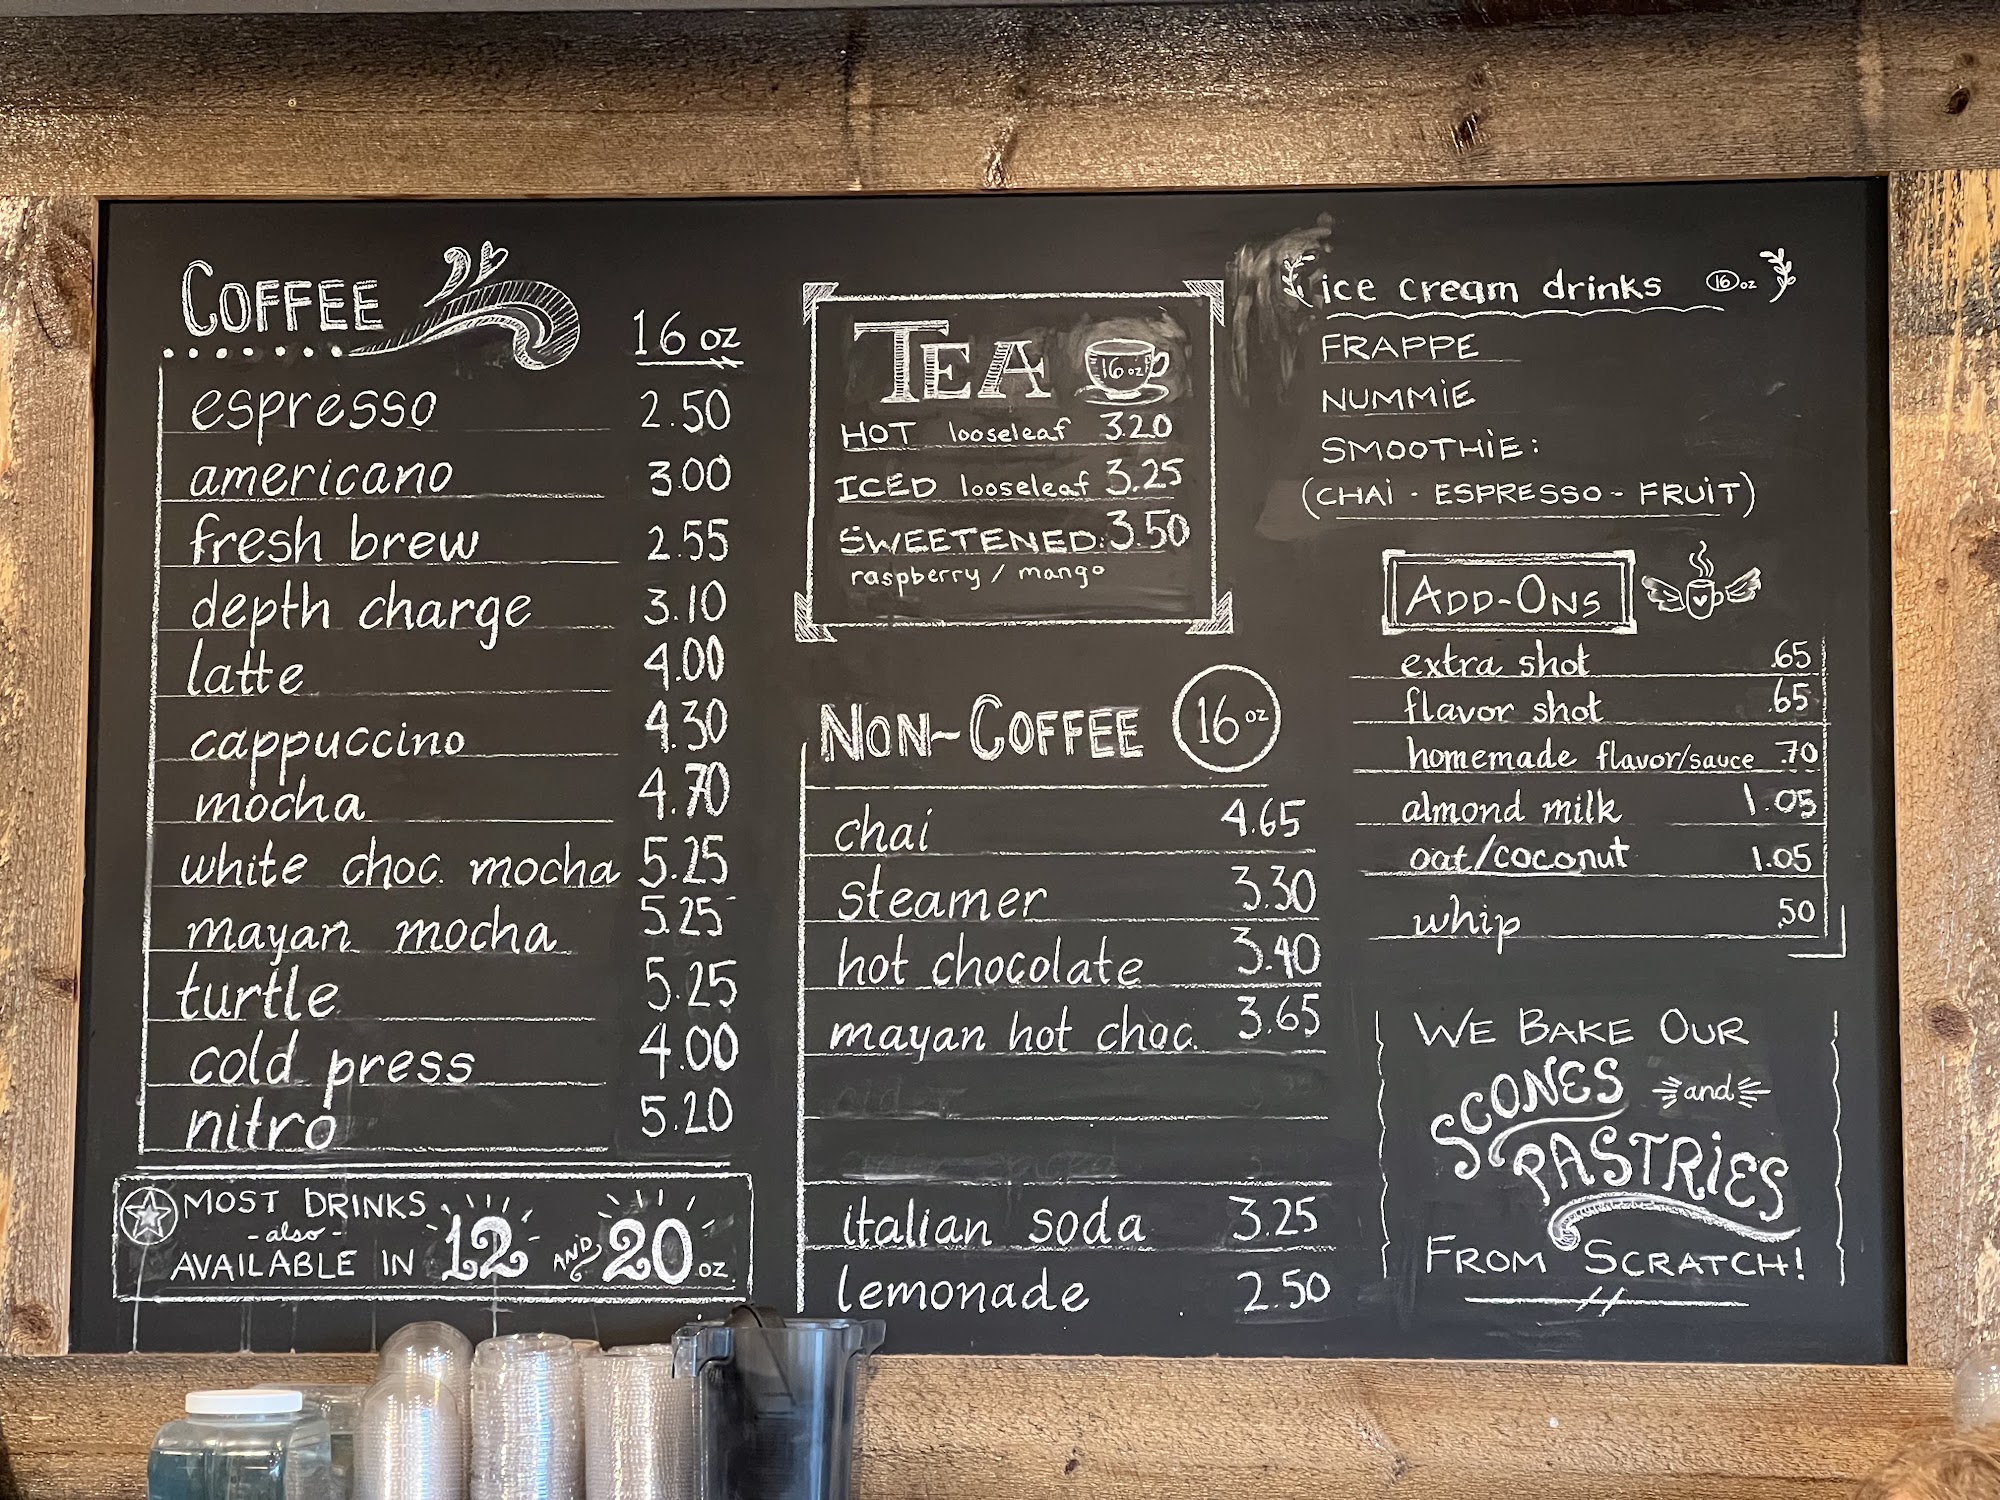 COFFEE
16 oz
espresso 2.50
americano 3.00
fresh brew 2.55
depth charge 3.10
latte 4.00
cappuccino 4.30
mocha 4.70
white choc. mocha 5.25
mayan mocha 5.25
turtle 5.25
cold press 4.00
nitro 5.20
MOST DRINKS
-also-
AVAILABLE IN 12 AND 20 oz.
TEA 16 oz
HOT looseleaf 3.20
ICED looseleaf 3.25
SWEETENED: 3.50
raspberry / mango
NON-COFFEE 16 oz
chai 4.65
steamer 3.30
hot chocolate 3.40
mayan hot choc. 3.65
italian soda 3.25
lemonade 2.50
ice cream drinks 16 oz
FRAPPE
NUMMiE
SMOOTHiE:
(CHAi - ESPRESSO - FRUiT)
ADD-ONS
extra shot .65
flavor shot .65
homemade flavor/sauce .70
almond milk 1.05
oat/coconut 1.05
whip .50
WE BAKE OUR
SCONES and
PASTRiES
FROM SCRATCH!